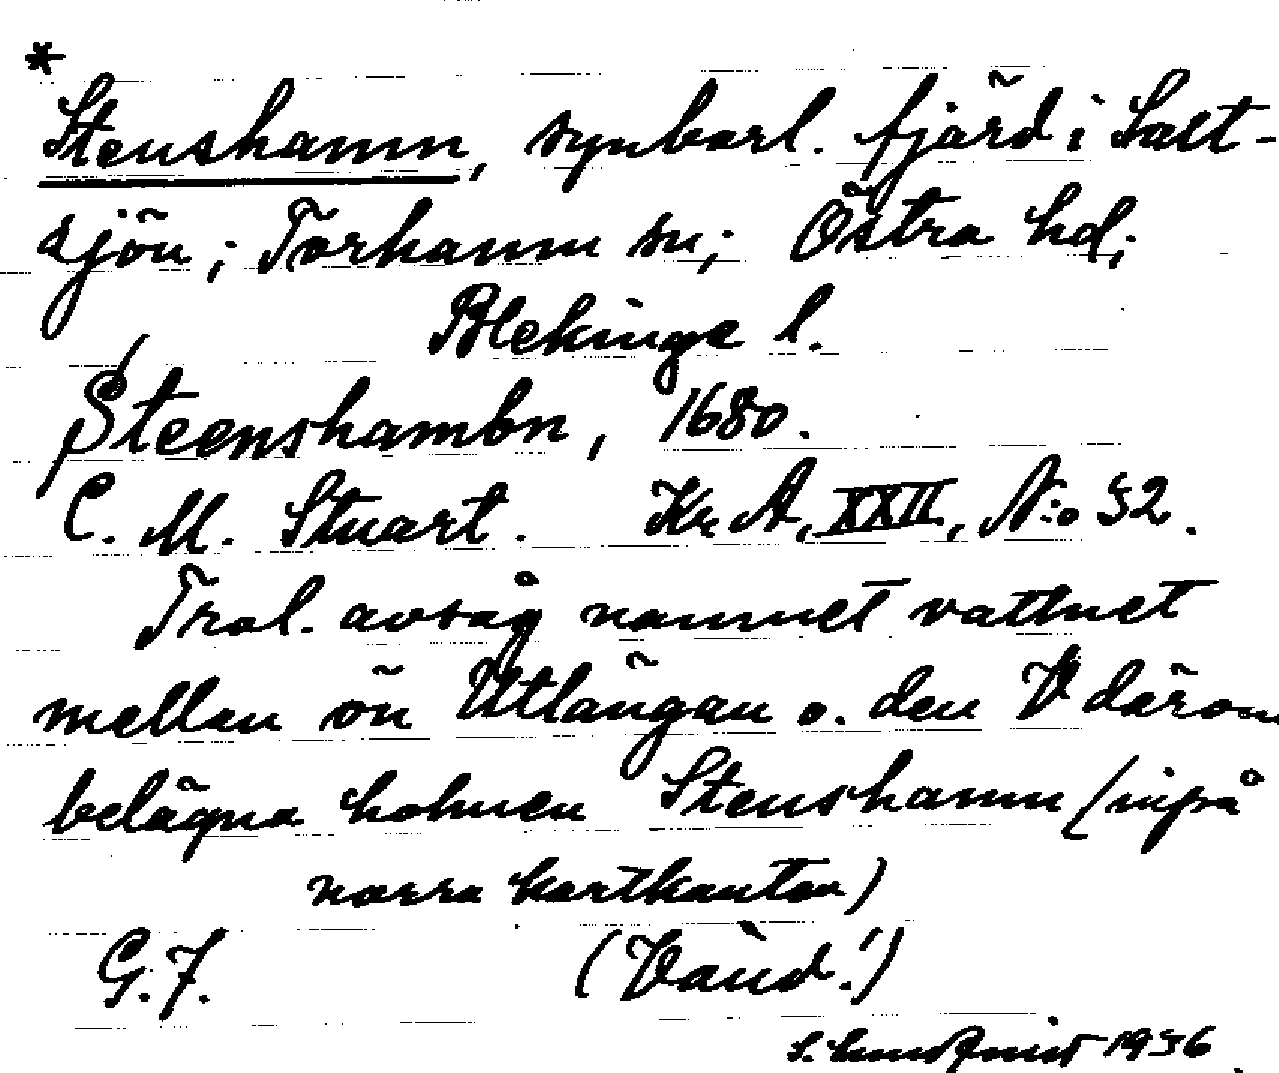 *
Stenshamn, synbarl. fjärd i Salt-
sjön; Torhamn sn; Östra hd;
Blekinge l.
Steenshambn, 1680.
C. M. Stuart. Kr. A, XXII, N:o 32.
Trol. avsåg namnet vattnet
mellan ön Utlängan o. den V därom
belägna holmen Stenshamn (inpå
norra kartkanten)
G. F. (Vänd!)
S. Lundquist 1936